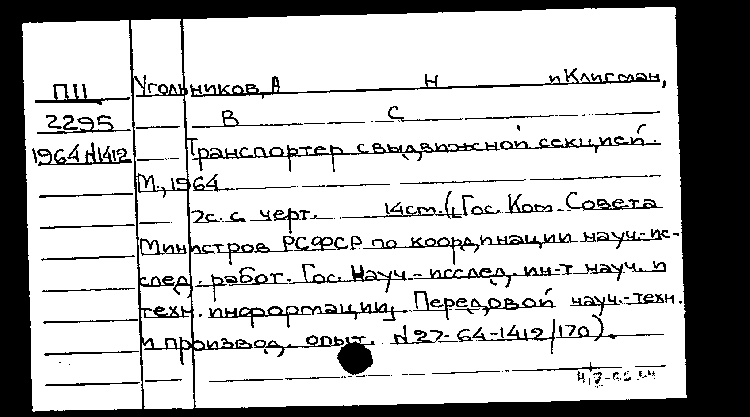 ПII Угольников, А Н и Клигман,
2295 В С
1964 N1412 Транспортер с выдвижной секцией.
М., 1964
2с. с черт. 14см. ([Гос. Ком. Совета
Министров РСФСР по координации науч.-ис-
след. работ. Гос. Науч.-исслед. ин-т науч. и
техн. информации]. Передовой науч.-техн.
и производ. опыт. N27-64-1412/170).